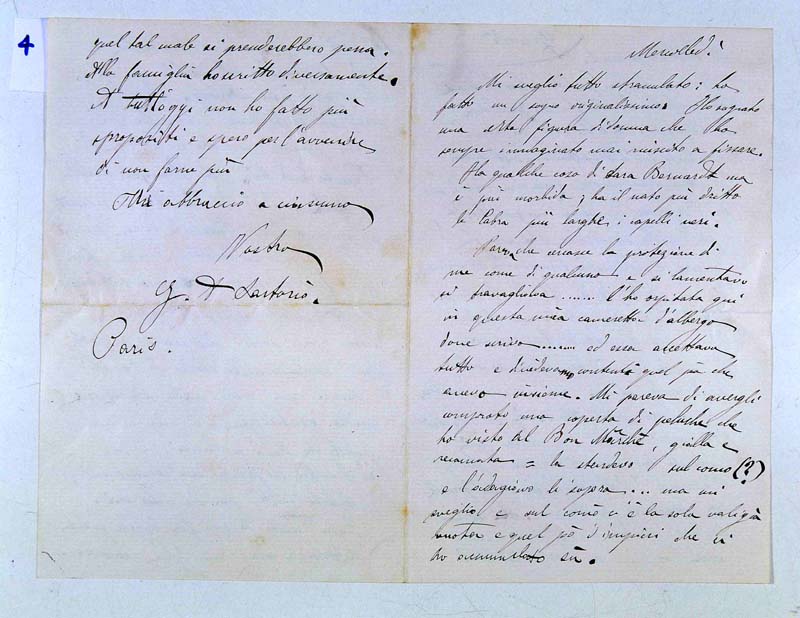 4
quel tal male si prenderebbero pena.
Alla famiglia ho scritto diversamente.
A tutt'oggi non ho fatto più
spropositi e spero per l'avvenire
di non farne più
Mi abbraccio a ciascuno
Vostro
G. A Sartorio.
Paris.
Mercoledì
Mi sveglio tutto stranulato; ho
fatto un sogno originalissimo. Ho sognato
una certa figura di donna che ho
sempre immaginato mai riuscito a fissare.
Ha qualche cosa di Sara Bernardt ma
è più morbida; ha il naso più diritto
le labra più larghe, i capelli neri.
Parea che venisse la protezione di
me come di qualcuno e si lamentava
si travagliava ...... l'ho ospitata qui
in questa mia cameretta d'albergo
dove scrivo ....... ed essa accettava
tutto e dividevamo contenti quel po che
avevo insieme. Mi pareva di avergli
comprato una coperta di peluche che
ho visto al Bon Marchè, gialla e
ricamata = la stendevo sul como (?)
e l'adagiavo lì sopra .... ma mi
sveglio e sul comò c'è la sola valigia
vuota e quel pò d'impicci che ci
ho accumulato sù.